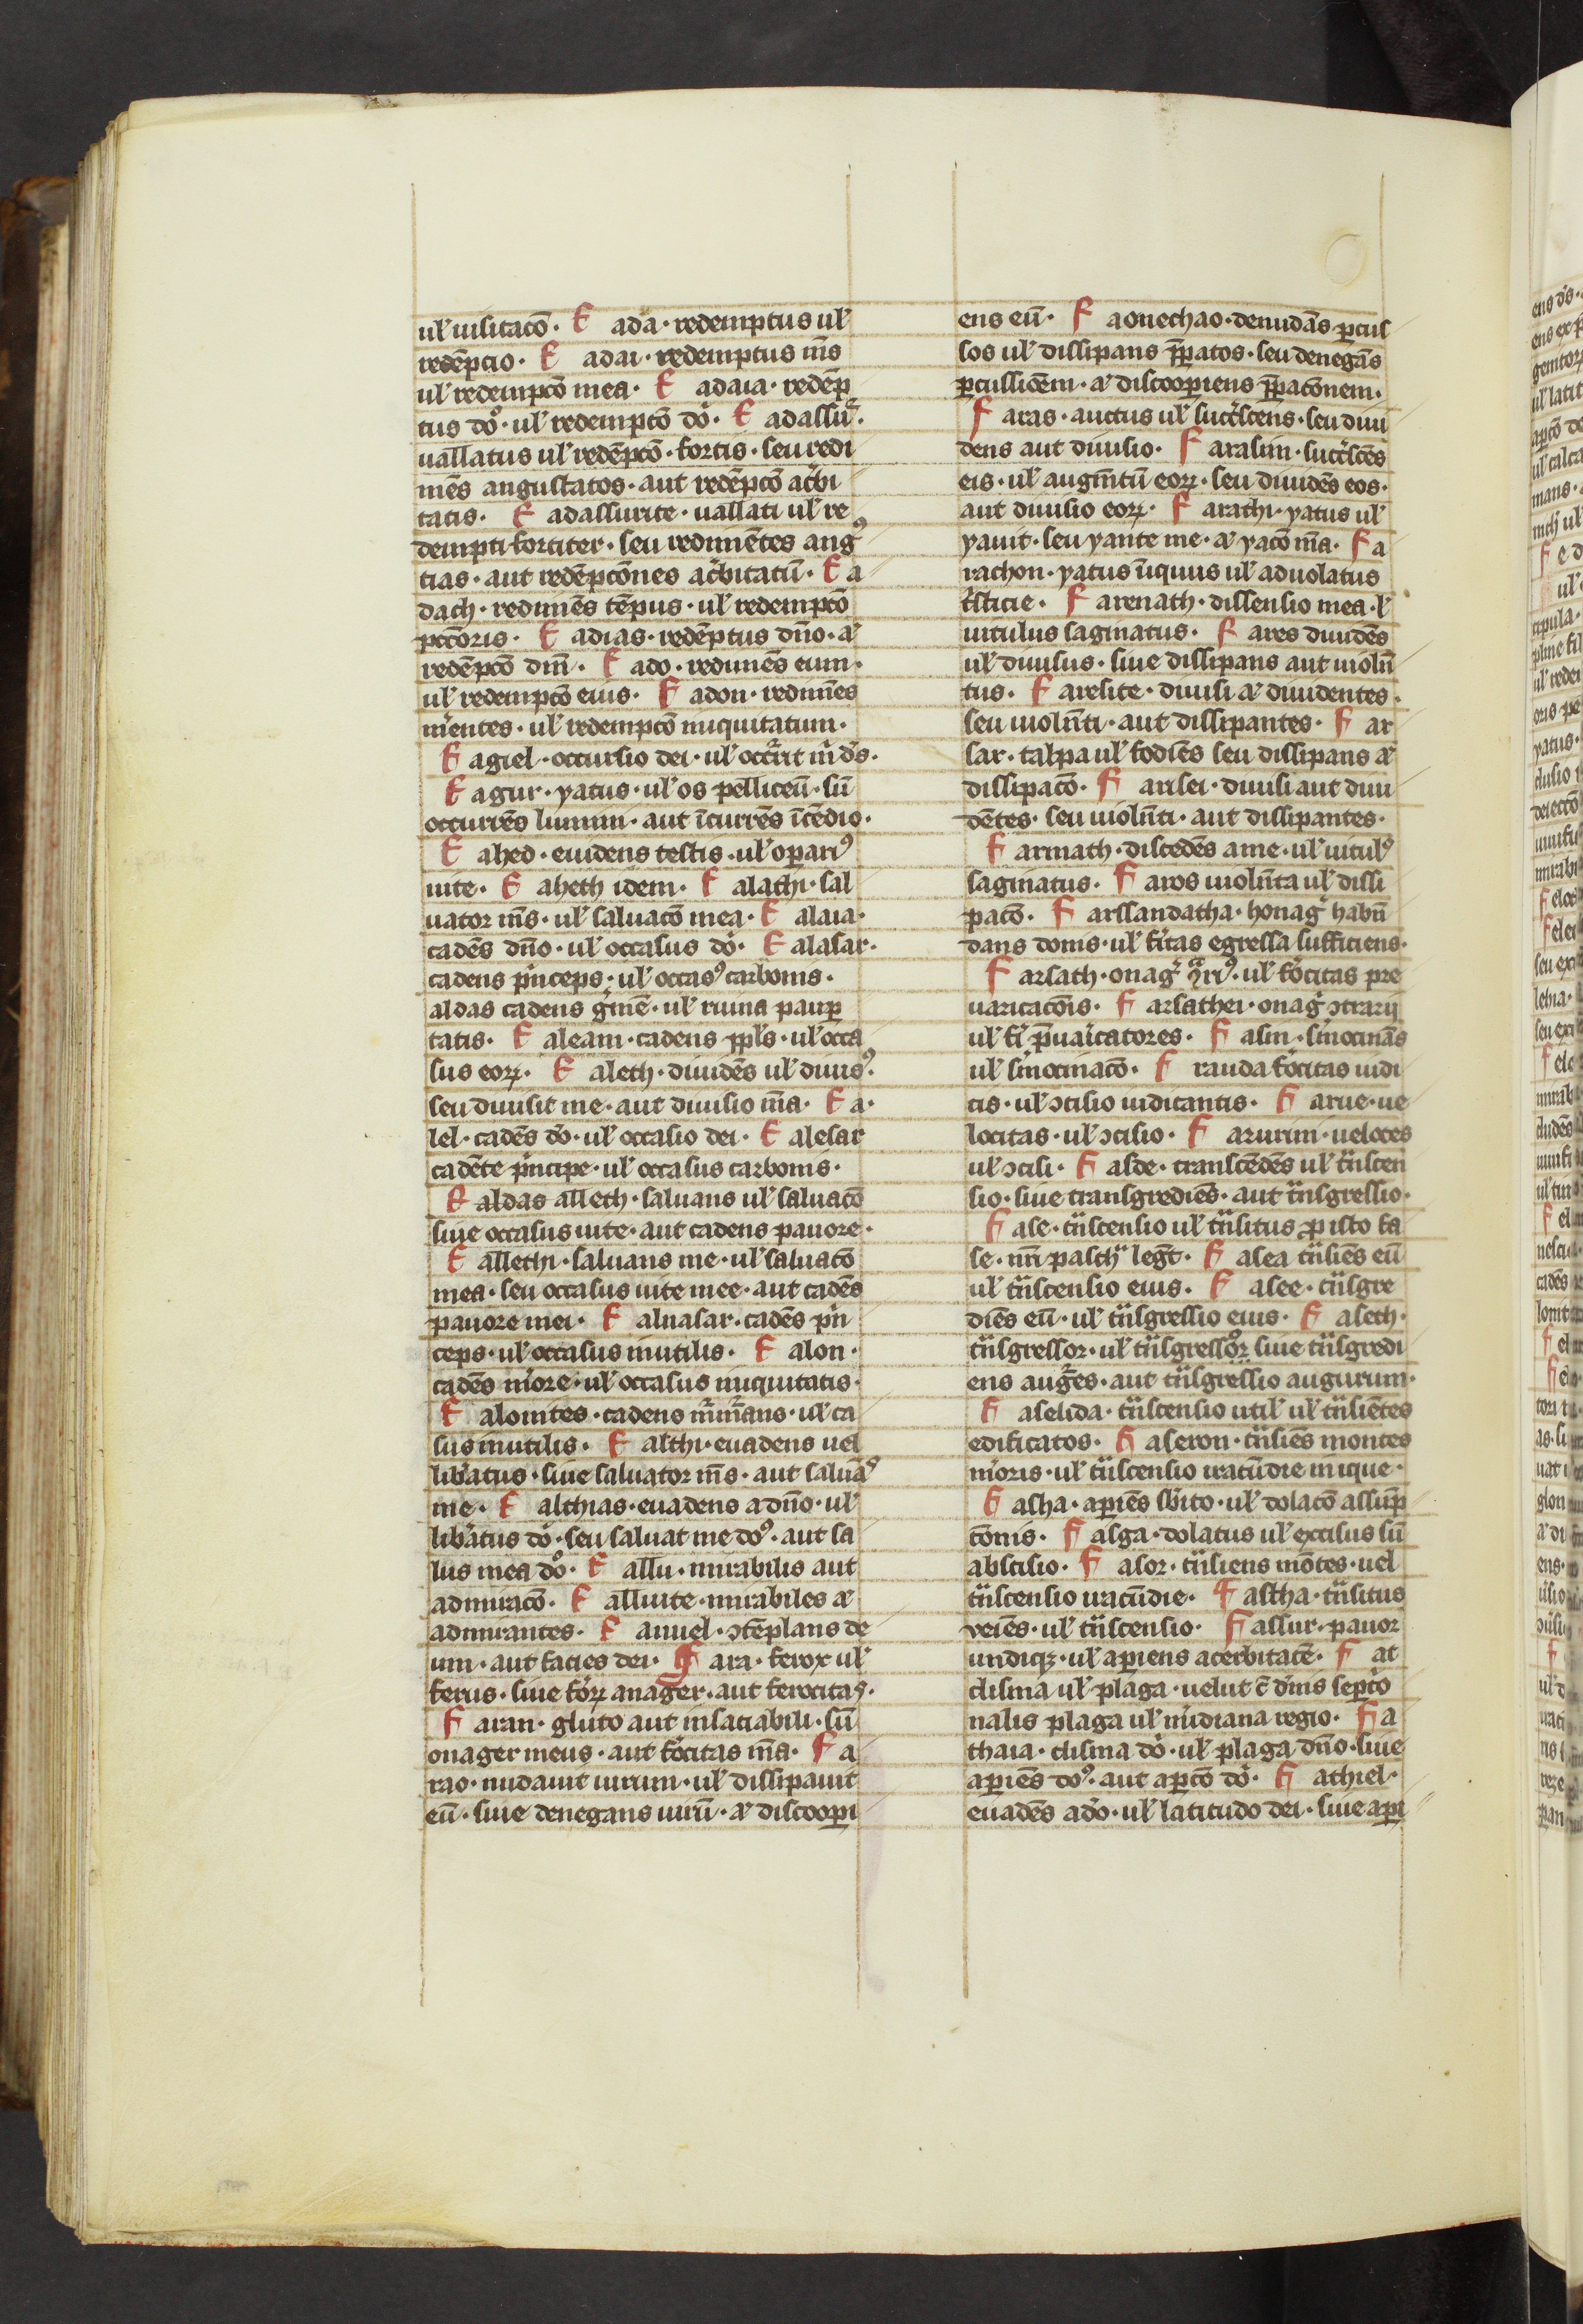 ul̕ uisitacō. F ada. redemptus ul̕
redēpcio. F adai. redemptus m̄s
ul̕ redempcō mea. F adaia. redēp
tus dō. ul̕ redempcō dō. F adassur.
uallatus ul̕ redēpcō. fortis. seu redi
mēs angustatos. aut redēpcō ac̕bi
tatis. F adassurite. uallati ul̕ re
dempti fortiter. seu redimētes angꝰ
tias. aut redēpcōnes ac̕bitatū. F a
dach. redimēs tēpus. ul̕ redempcō
pctōris. F adias. redēptus dn̄o. et
redēpcō dn̄i. F ado. redimēs eum.
ul̕ redempcō eius. F adon. redimēs
m̕entes. ul̕ redempcō iniquitatum.
F agiel. occursio dei. ul̕ occ̕rit m̕ ds̄.
F agur. yatus. ul̕ os pelliceū. sū
occurrēs lumini. aut īcurrēs īcēdio.
F ahed. euidens testis. ul̕ oꝑariꝰ
uite. F aheth idem. F alathi. sal
uator m̄s. ul̕ saluacō mea. F alaia.
cadēs dn̄o. ul̕ occasus dō. F alasar.
cadens p̕nceps. ul̕ occasꝰ carbonis.
aldas cadens g̕mē. ul̕ ruina pauꝑ
tatis. F aleam. cadens ppl̕s. ul̕ occa
sus eoꝝ. F aleth. diuidēs ul̕ diuisꝰ.
seu diuisit me. aut diuisio m̄a. F a.
lel. cadēs dō. ul̕ occasio dei. F alesar
cadēte p̕ncipe. ul̕ occasus carbonis.
F aldas alleth. saluans ul̕ saluacō
siue occasus uite. aut cadens pauore.
F allethi. saluans me. ul̕ saluacō
mea. seu occasus uite mee. aut cadēs
pauore mei. F alnasar. cadēs p̕n
ceps. ul̕ occasus inutilis. F alon.
cadēs m̕ore. ul̕ occasus iniquitatis.
F alonites. cadens m̕m̕ans. ul̕ ca
sus inutilis. F althi. euadens uel
lib̕atus. siue saluator m̄s. aut saluāꝰ
me. F althias. euadens a dn̄o. ul̕
lib̕atus dō. seu saluat me dōꝰ. aut sa
lus mea dō. F allu. mirabilis aut
admiracō. F alluite. mirabiles et
admirantes. F anuel. ꝯtēplans de
um. aut facies dei. F ara. ferox ul̕
ferus. siue f̕oꝝ anager. aut ferocitas.
F aran. gluto aut insaciabili. sū
onager meus. aut f̕ocitas m̄a. F a
rao. nudauit uirum. ul̕ dissipauit
eū. siue denegans uirū. et discooꝑi
ens eū. F aonechao. denudās ꝑcus
sos ul̕ dissipans p̄ꝑatos. seu denegās
ꝑcussiōem. et discooꝑiens p̄ꝑacōnem.
F aras. auctus ul̕ succ̕scens. seu diui
dens aut diuisio. F arasim. succ̕scēs
eis. ul̕ augm̄tū eoꝝ. seu diuidēs eos.
aut diuisio eoꝝ. F arathi. yatus ul̕
yauit. seu yante me. et yacō m̄a. F a
rachon. yatus iniquus ul̕ aduolatus
t̕sticie. F arenath. dissensio mea. ul̕
uitulus saginatus. F ares diuidēs
ul̕ diuisus. siue dissipans aut uiolēn
tus. F aresite. diuisi et diuidentes.
seu uiolēnti. aut dissipantes. F ar
sar. talpa ul̕ fodiēs seu dissipans et
dissipacō. F arisei. diuisi aut diui
dētes. seu uiolēnti. aut dissipantes.
F armath. discedēs a me. ul̕ uitulꝰ
saginatus. F aros uiolēnta ul̕ dissi
pacō. F arssandatha. honag̕ habūn
dans donis. ul̕ f̕itas egressa sufficiens.
F arsath. onag̕ ul̕ f̕ocitas pre
uaricacōis. F arsathei. onag̕ ꝯtrarij
ul̕ f̕i p̄uaricatores. F asin. s̕mocināns
ul̕ s̕mocinacō. F rauda f̕ocitas iudi
cis. ul̕ ꝯcisio iudicantis. F arue. ue
locitas. ul̕ ꝯcisio. F arurim. ueloces
ul̕ ꝯcisi. F asde. transcēdēs ul̕ t̄nscen
sio. siue transgrediēs. aut t̄nsgressio.
F ase. t̄nscensio ul̕ t̄nsitus pro isto fa
se. legit̄. F asea t̄nsiēs eū
ul̕ t̄nscensio eius. F asee. t̄nsgre
diēs eū. ul̕ t̄nsgressio eius. F aseth.
t̄nsgressor. ul̕ t̄nsgressoꝝ siue t̄nsgredi
ens aug̕es. aut t̄nsgressio augurum.
F aselida. t̄nscensio util̕ ul̕ t̄nsiētes
edificatos. F aseron. t̄nsiēs montes
m̕oris. ul̕ t̄nscensio iracūdie inique.
F asha. aꝑiēs sb̕ito. ul̕ dolacō assūp
cōnis. F asga. dolatus ul̕ excisus sū
abscisio. F asor. t̄nsiens mōtes. uel
t̄nscensio iracūdie. F astha. t̄nsitus
veiēs. ul̕ t̄nscensio. F assur. pauor
undiqꝫ. ul̕ aꝑiens acerbitatē. F at
clisma ul̕ plaga. uelut ē d̕ins sept̕o
nalis plaga ul̕ m̕idiana regio. F a
thaia. clisma dō. ul̕ plaga dn̄o. siue
aꝑiēs doꝰ. aut aꝑcō dō. F athiel.
euadēs a dō. ul̕ latitudo dei. siue aꝑi